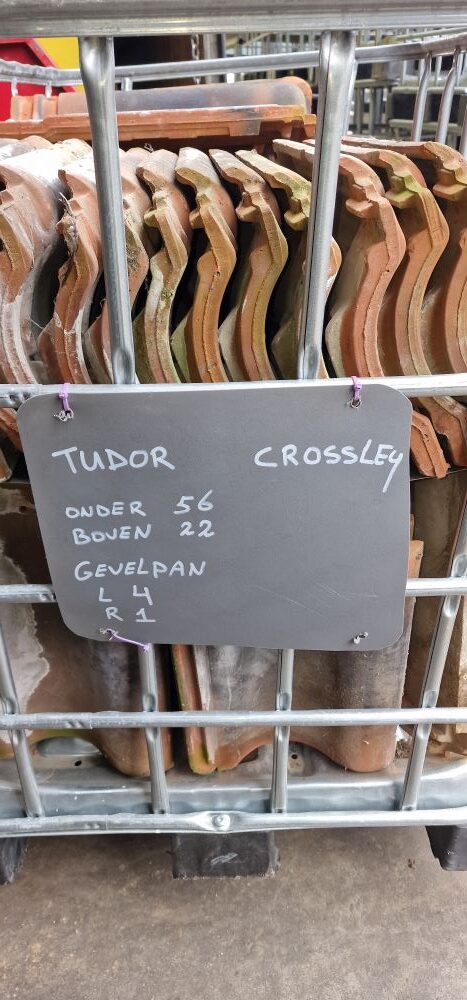 TUDOR CROSSLEY
ONDER 56
BOVEN 22
GEVELPAN
L 4
R 1